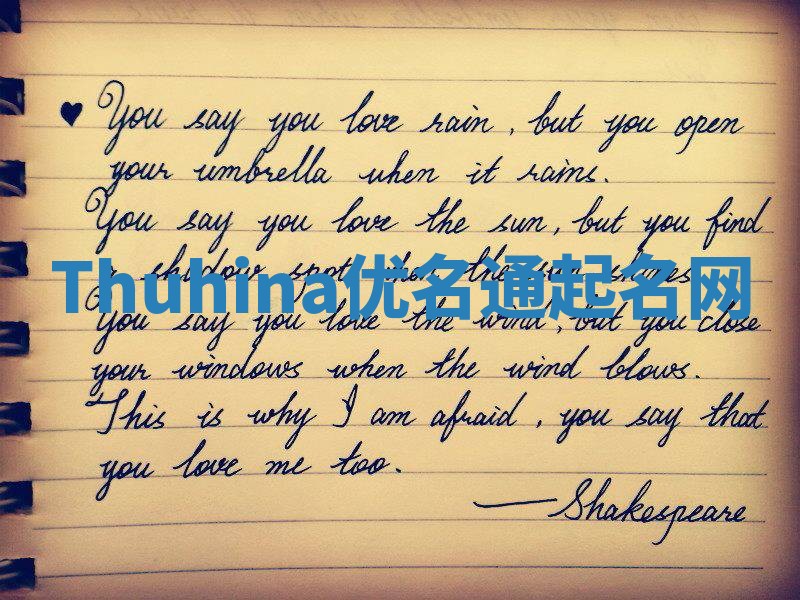 ♥ You say you love rain, but you open
your umbrella when it rains.
You say you love the sun, but you find
a shadow spot when the sun shines.
Thuhina优名通起名网
You say you love the wind, but you close
your windows when the wind blows.
This is why I am afraid, you say that
you love me too.
—Shakespeare